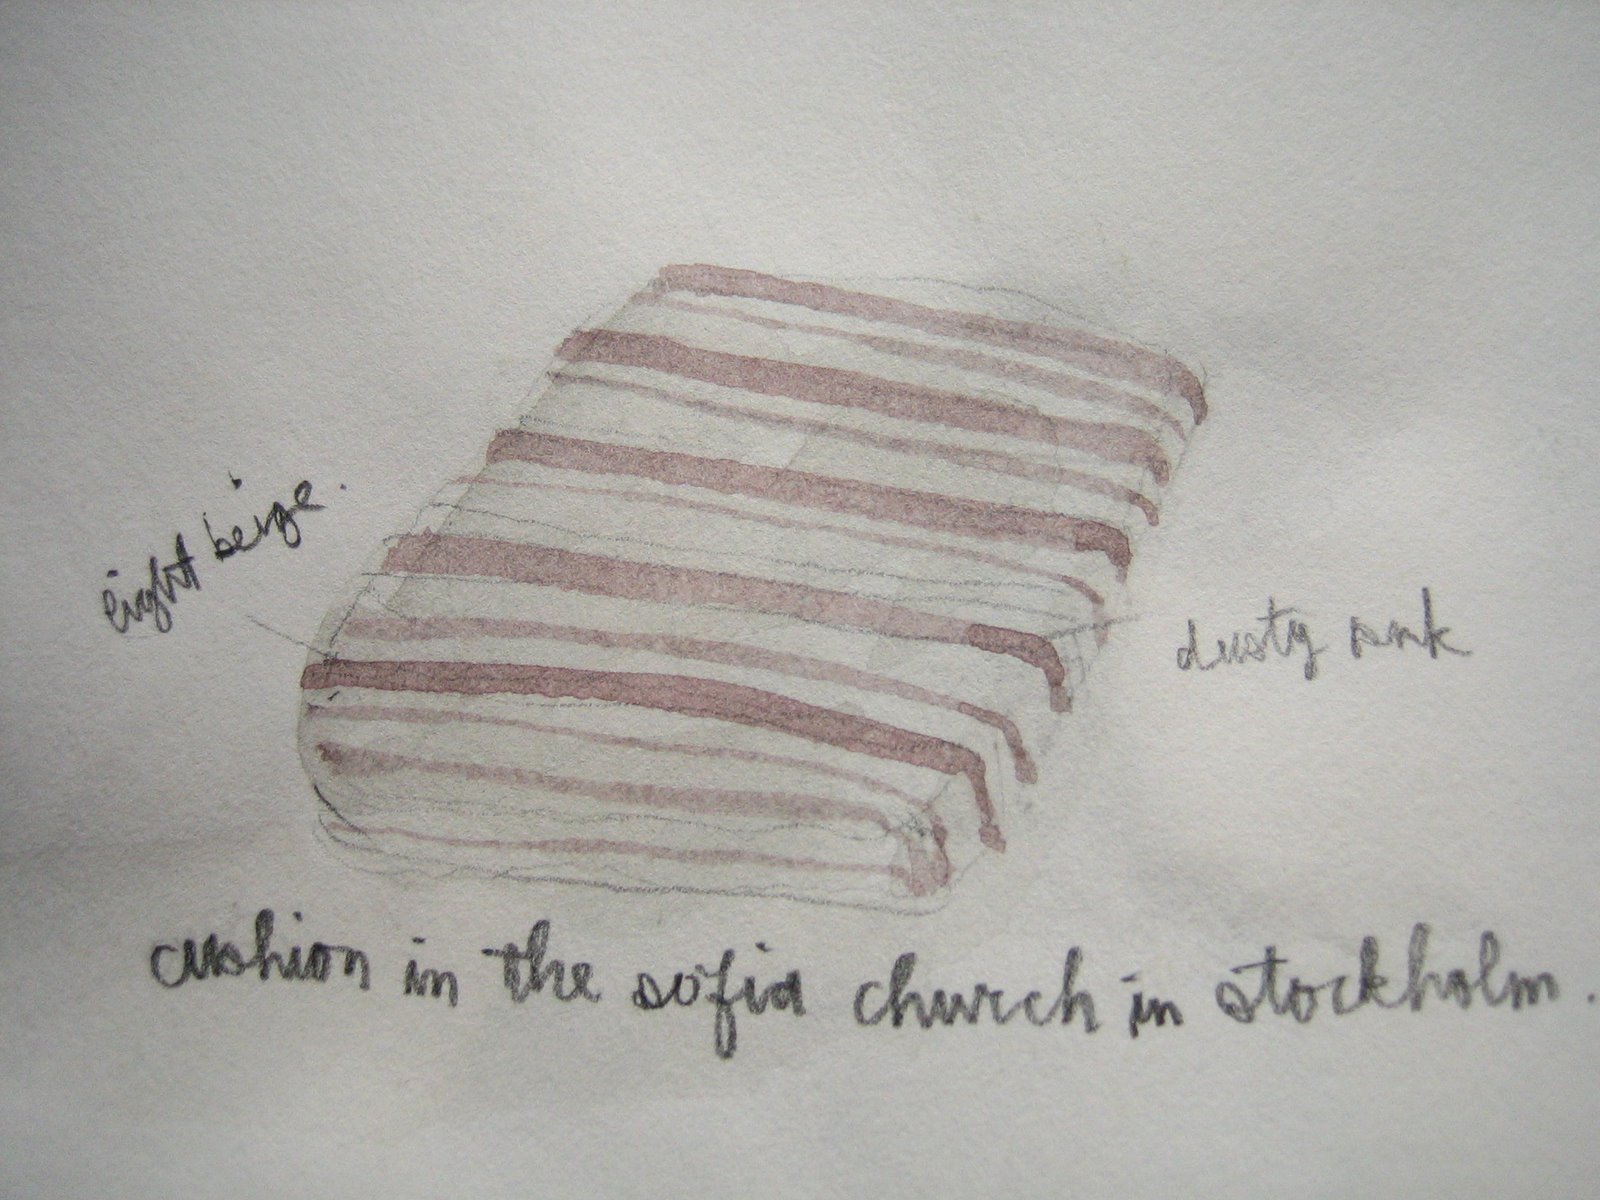 light beige.
dusty pink
cushion in the sofia church in stockholm.